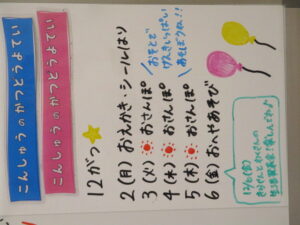 こんしゅうのかつどうよてい
こんしゅうのかつどうよてい
12がつ
2(月)おえかき・シールはり
3(火)おさんぽ
4(水)おさんぽ
5(木)おさんぽ
6(金)おへやあそび
おそとで
げんきいっぱい
あそぼうね!!
12/6(金)